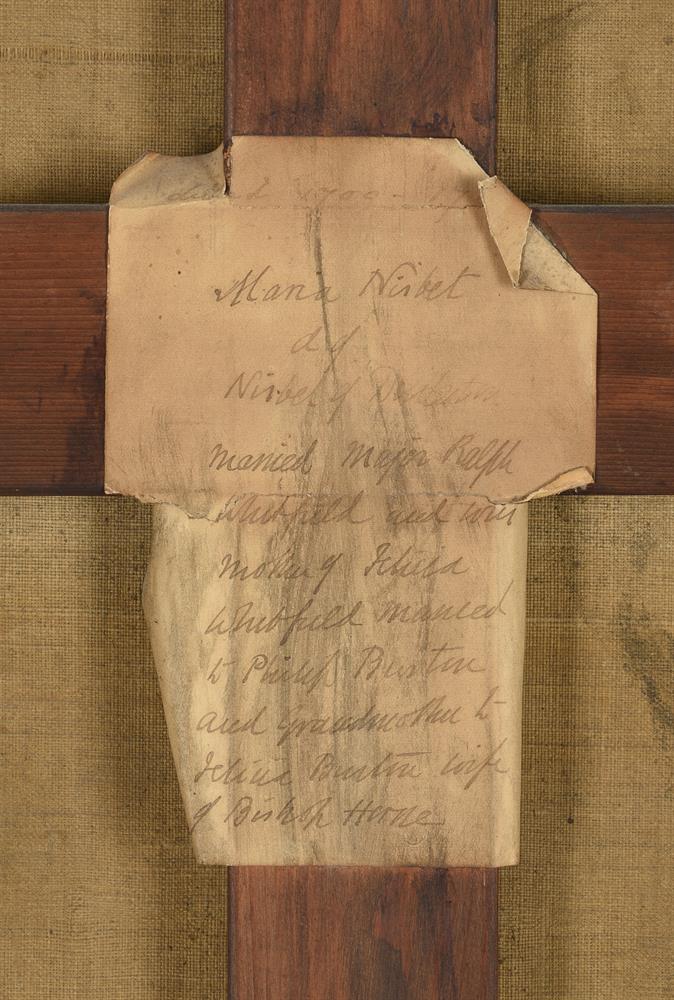 1700
Maria Nisbet
d of
Nisbet of
married Major Ralph
Whitfield and was
mother of Felicia
Whitfield married
to Philip Burton
and Grandmother to
Felicia Burton wife
of Bishop Horne